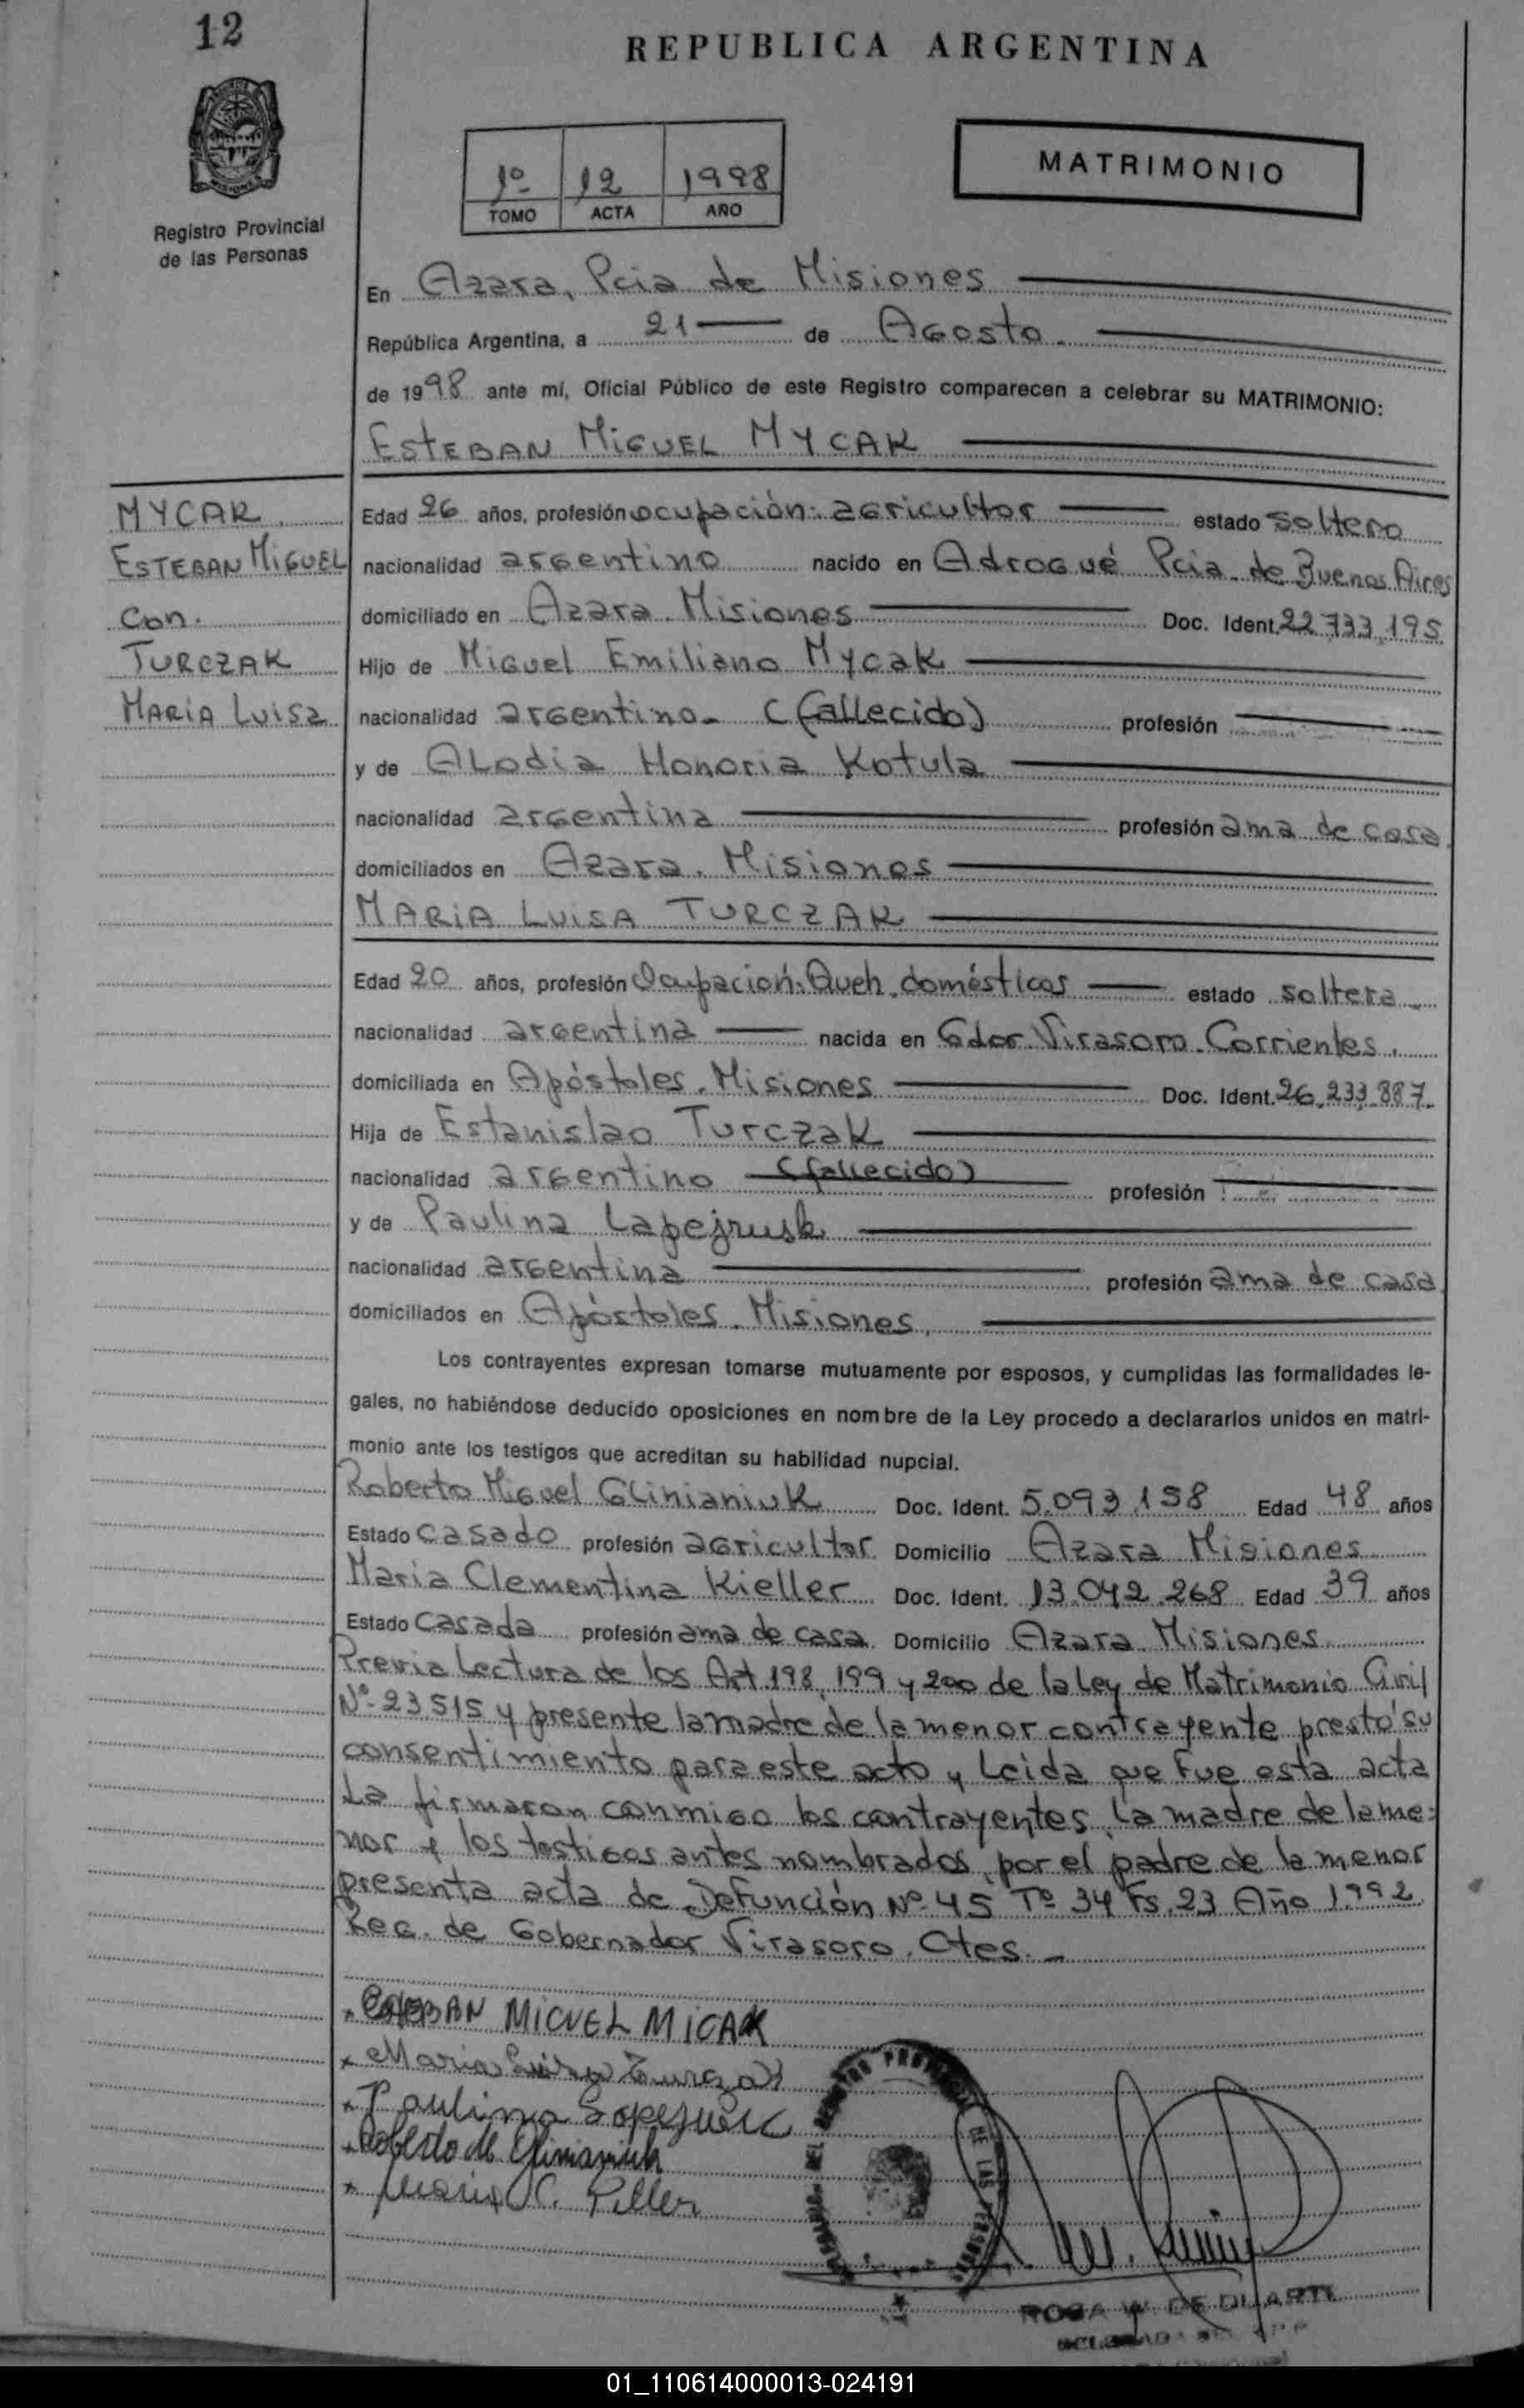 12
REPUBLICA ARGENTINA
MATRIMONIO
1º 12 1998
TOMO ACTA AÑO
Registro Provincial
de las Personas
En Azara, Pcia de Misiones
República Argentina, a 21 de Agosto.
de 1998 ante mí, Oficial Público de este Registro comparecen a celebrar su MATRIMONIO:
ESTEBAN MIGUEL MYCAK
MYCAK
ESTEBAN MIGUEL
Con.
TURCZAK
MARIA LUISA
Edad 26 años, profesión ocupación: agricultor estado soltero
nacionalidad argentino nacido en Adrogué Pcia. de Buenos Aires
domiciliado en Azara. Misiones Doc. Ident. 22.733.195
Hijo de Miguel Emiliano Mycak
nacionalidad argentino- (fallecido) profesión
y de Alodia Honoria Kotula
nacionalidad argentina profesión ama de casa
domiciliados en Azara. Misiones
MARIA LUISA TURCZAK
Edad 20 años, profesión Ocupación: Queh. domésticos estado soltera
nacionalidad argentina nacida en Gdor. Virasoro. Corrientes.
domiciliada en Apóstoles. Misiones Doc. Ident. 26.233.887.
Hija de Estanislao Turczak
nacionalidad argentino (fallecido) profesión
y de Paulina Lapejrusk
nacionalidad argentina profesión ama de casa
domiciliados en Apóstoles. Misiones.
Los contrayentes expresan tomarse mutuamente por esposos, y cumplidas las formalidades le-
gales, no habiéndose deducido oposiciones en nombre de la Ley procedo a declararlos unidos en matri-
monio ante los testigos que acreditan su habilidad nupcial.
Roberto Miguel Glinianiuk Doc. Ident. 5.093.158 Edad 48 años
Estado Casado profesión agricultor Domicilio Azara Misiones
Maria Clementina Kieller Doc. Ident. 13.042.268 Edad 39 años
Estado Casada profesión ama de casa Domicilio Azara Misiones
Previa Lectura de los Art. 198, 199 y 200 de la Ley de Matrimonio Civil
Nº 23.515 y presente la madre de la menor contrayente prestó su
consentimiento para este acto y Leida que fue esta acta
La firmaron conmigo los contrayentes, la madre de la me=
nor y los testigos antes nombrados, por el padre de la menor
presenta acta de Defunción Nº 45 Tº 34 Fs. 23 Año 1.992
Reg. de Gobernador Virasoro. Ctes. -
ESTEBAN MIGUEL MICAK
Maria Luisa Turczak
Paulina Lopejuik
Roberto M. Glinianiuk
Maria C. Piller
REGISTRO PROVINCIAL DE LAS PERSONAS
ROSA W. DE DUARTE
01_110614000013-024191